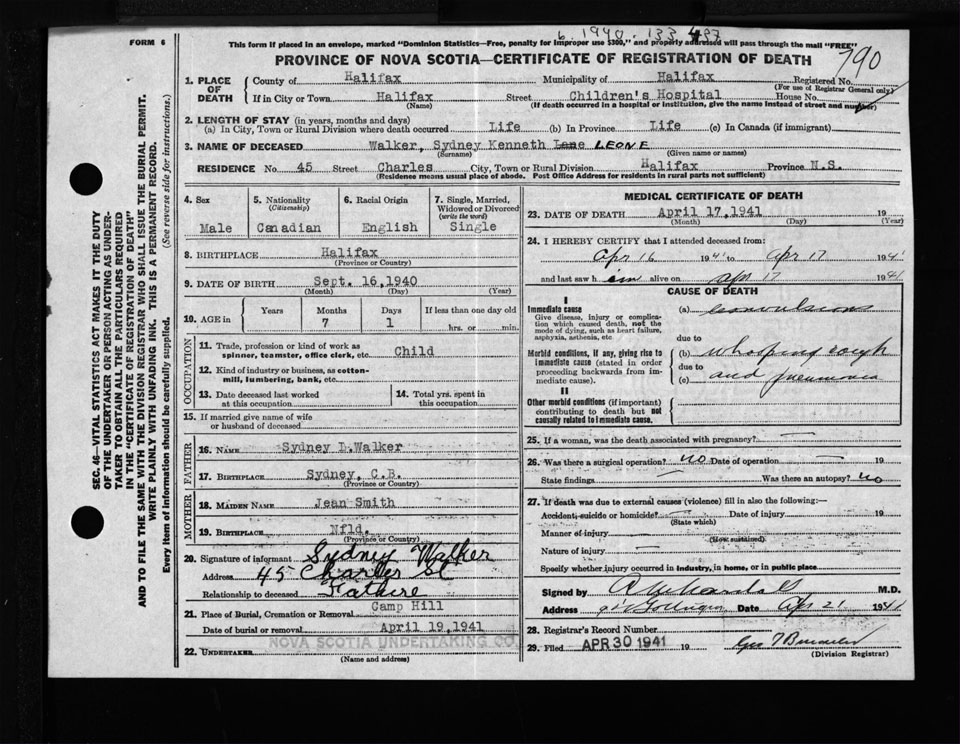 6. 1940. 133 487
FORM 6
This form if placed in an envelope, marked "Dominion Statistics—Free, penalty for improper use $300," and properly addressed will pass through the mail "FREE"
790
PROVINCE OF NOVA SCOTIA—CERTIFICATE OF REGISTRATION OF DEATH
1. PLACE OF DEATH
County of Halifax Municipality of Halifax Registered No.
(For use of Registrar General only)
If in City or Town Halifax Street Children's Hospital House No.
(Name) (If death occurred in a hospital or institution, give the name instead of street and number)
2. LENGTH OF STAY (in years, months and days)
(a) In City, Town or Rural Division where death occurred Life (b) In Province Life (c) In Canada (if immigrant)
3. NAME OF DECEASED Walker, Sydney Kenneth Lane LEONE
(Surname) (Given name or names)
RESIDENCE No. 45 Street Charles City, Town or Rural Division Halifax Province N.S.
(Residence means usual place of abode. Post Office Address for residents in rural parts not sufficient)
4. Sex
Male
5. Nationality
(Citizenship)
Canadian
6. Racial Origin
English
7. Single, Married, Widowed or Divorced
(write the word)
Single
8. BIRTHPLACE Halifax
(Province or Country)
9. DATE OF BIRTH Sept. 16, 1940
(Month) (Day) (Year)
10. AGE in
Years Months Days If less than one day old
7 1 hrs. or min.
OCCUPATION
11. Trade, profession or kind of work as
spinner, teamster, office clerk, etc. Child
12. Kind of industry or business, as cotton-
mill, lumbering, bank, etc.
13. Date deceased last worked
at this occupation
14. Total yrs. spent in
this occupation
15. If married give name of wife
or husband of deceased
FATHER
16. NAME Sydney D. Walker
17. BIRTHPLACE Sydney, C.B.
(Province or Country)
MOTHER
18. MAIDEN NAME Jean Smith
19. BIRTHPLACE Nfld.
(Province or Country)
20. Signature of informant Sydney Walker
Address 45 Charles St
Relationship to deceased Fathire
21. Place of Burial, Cremation or Removal Camp Hill
Date of burial or removal April 19, 1941
22. UNDERTAKER NOVA SCOTIA UNDERTAKING CO.
(Name and address)
MEDICAL CERTIFICATE OF DEATH
23. DATE OF DEATH April 17, 1941 19
(Month) (Day) (Year)
24. I HEREBY CERTIFY that I attended deceased from:
Apr 16 1941 to Apr 17 1941
and last saw him alive on Apr 17 1941
CAUSE OF DEATH
I
Immediate cause
Give disease, injury or complication which caused death, not the mode of dying, such as heart failure, asphyxia, asthenia, etc
(a) convulsions
due to
Morbid conditions, if any, giving rise to immediate cause (stated in order proceeding backwards from immediate cause).
(b) whooping cough
due to
(c) and pneumonia
II
Other morbid conditions (if important) contributing to death but not causally related to immediate cause.
25. If a woman, was the death associated with pregnancy? —
26. Was there a surgical operation? no Date of operation — 19
State findings — Was there an autopsy? no
27. If death was due to external causes (violence) fill in also the following:—
Accident, suicide or homicide? — Date of injury 19
(State which)
Manner of injury —
(How sustained)
Nature of injury —
Specify whether injury occurred in industry, in home, or in public place
Signed by M.D.
Address Date Apr 21 1941
28. Registrar's Record Number
29. Filed APR 30 1941 19
(Division Registrar)
SEC. 46—VITAL STATISTICS ACT MAKES IT THE DUTY
OF THE UNDERTAKER OR PERSON ACTING AS UNDER-
TAKER TO OBTAIN ALL THE PARTICULARS REQUIRED
IN THE "CERTIFICATE OF REGISTRATION OF DEATH"
AND TO FILE THE SAME WITH THE DIVISION REGISTRAR WHO SHALL ISSUE THE BURIAL PERMIT.
WRITE PLAINLY WITH UNFADING INK. THIS IS A PERMANENT RECORD.
Every item of information should be carefully supplied. (See reverse side for instructions.)